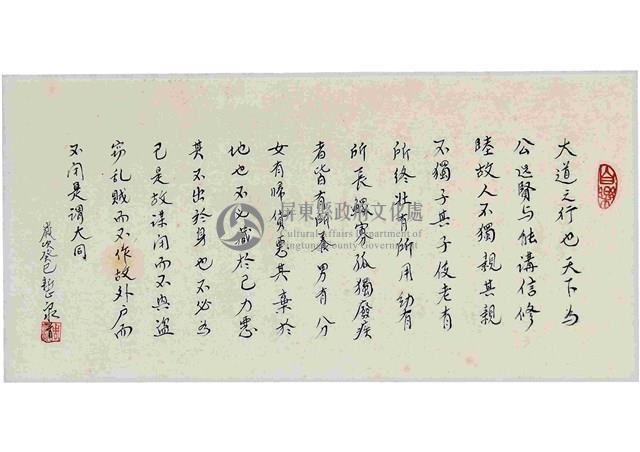 大道之行也天下为
公选賢与能講信修
睦故人不獨親其親
不獨子其子使老有
所终壮有所用幼有
所長鰥寡孤獨廢疾
者皆有所养男有分
女有歸货惡其棄於
地也不必藏於己力惡
其不出於身也不必为
己是故谋闭而不兴盗
窃乱贼而不作故外户而
不闭是谓大同
歲次癸巳
屏東縣政府文化處
Cultural Affairs Department of
Pingtung County Government